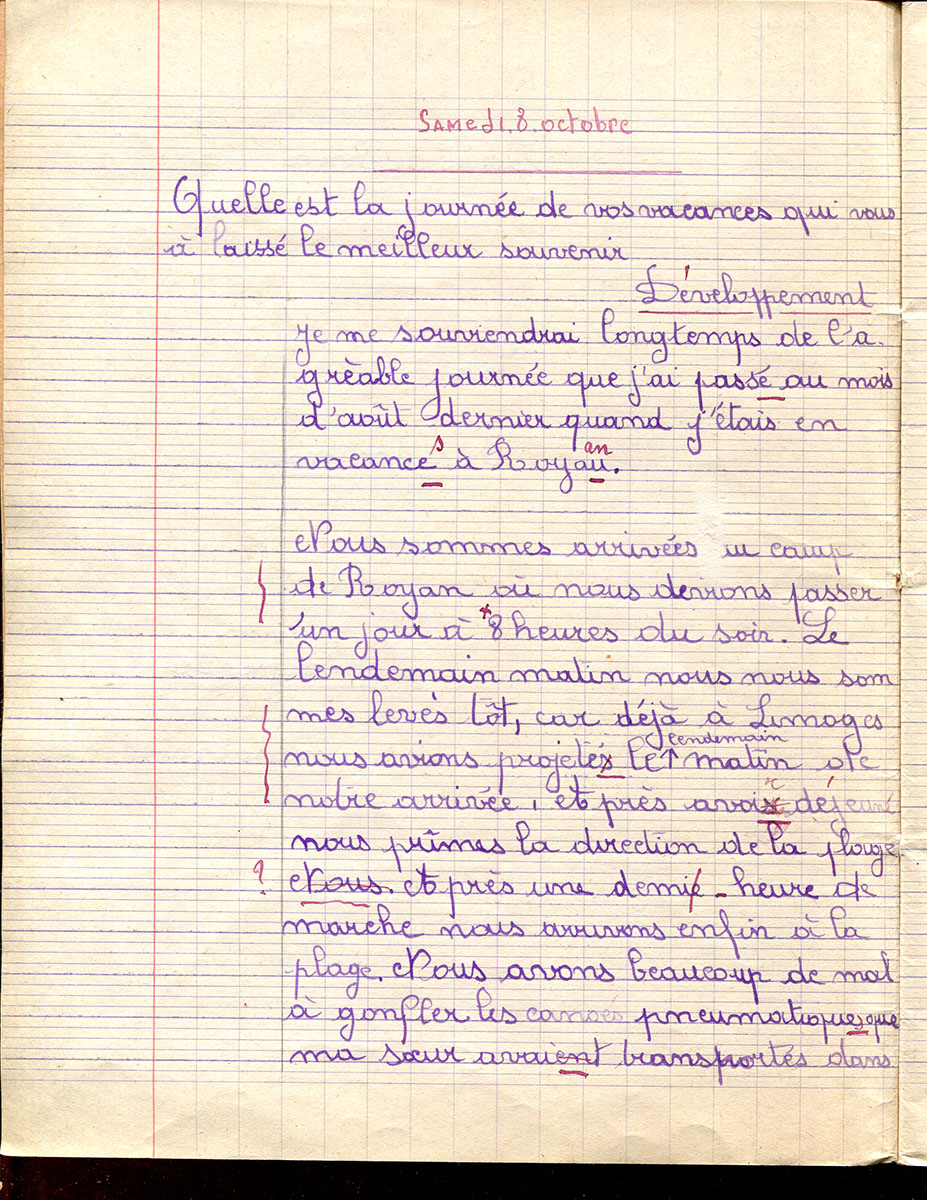 Samedi 8 octobre
Quelle est la journée de vos vacances qui vous
à laissé le meilleur souvenir
Développement
Je me souviendrai longtemps de l'a
grèable journée que j'ai passé au mois
d'août dernier quand j'étais en
vacances à Royan.
Nous sommes arrivées au camp
de Royan où nous devrons passer
un jour à 8 heures du soir. Le
lendemain matin nous nous som
mes levés tôt, car déjà à Limoges
lendemain
nous avions projetés le matin de
notre arrivée, et près avoir déjeuné
nous prîmes la direction de la plage
? Nous. et près une demie - heure de
marche nous arrivons enfin à la
plage. Nous avons beaucoup de mal
à gonfler les canoés pneumatiques que
ma sœur avaient transportés dans